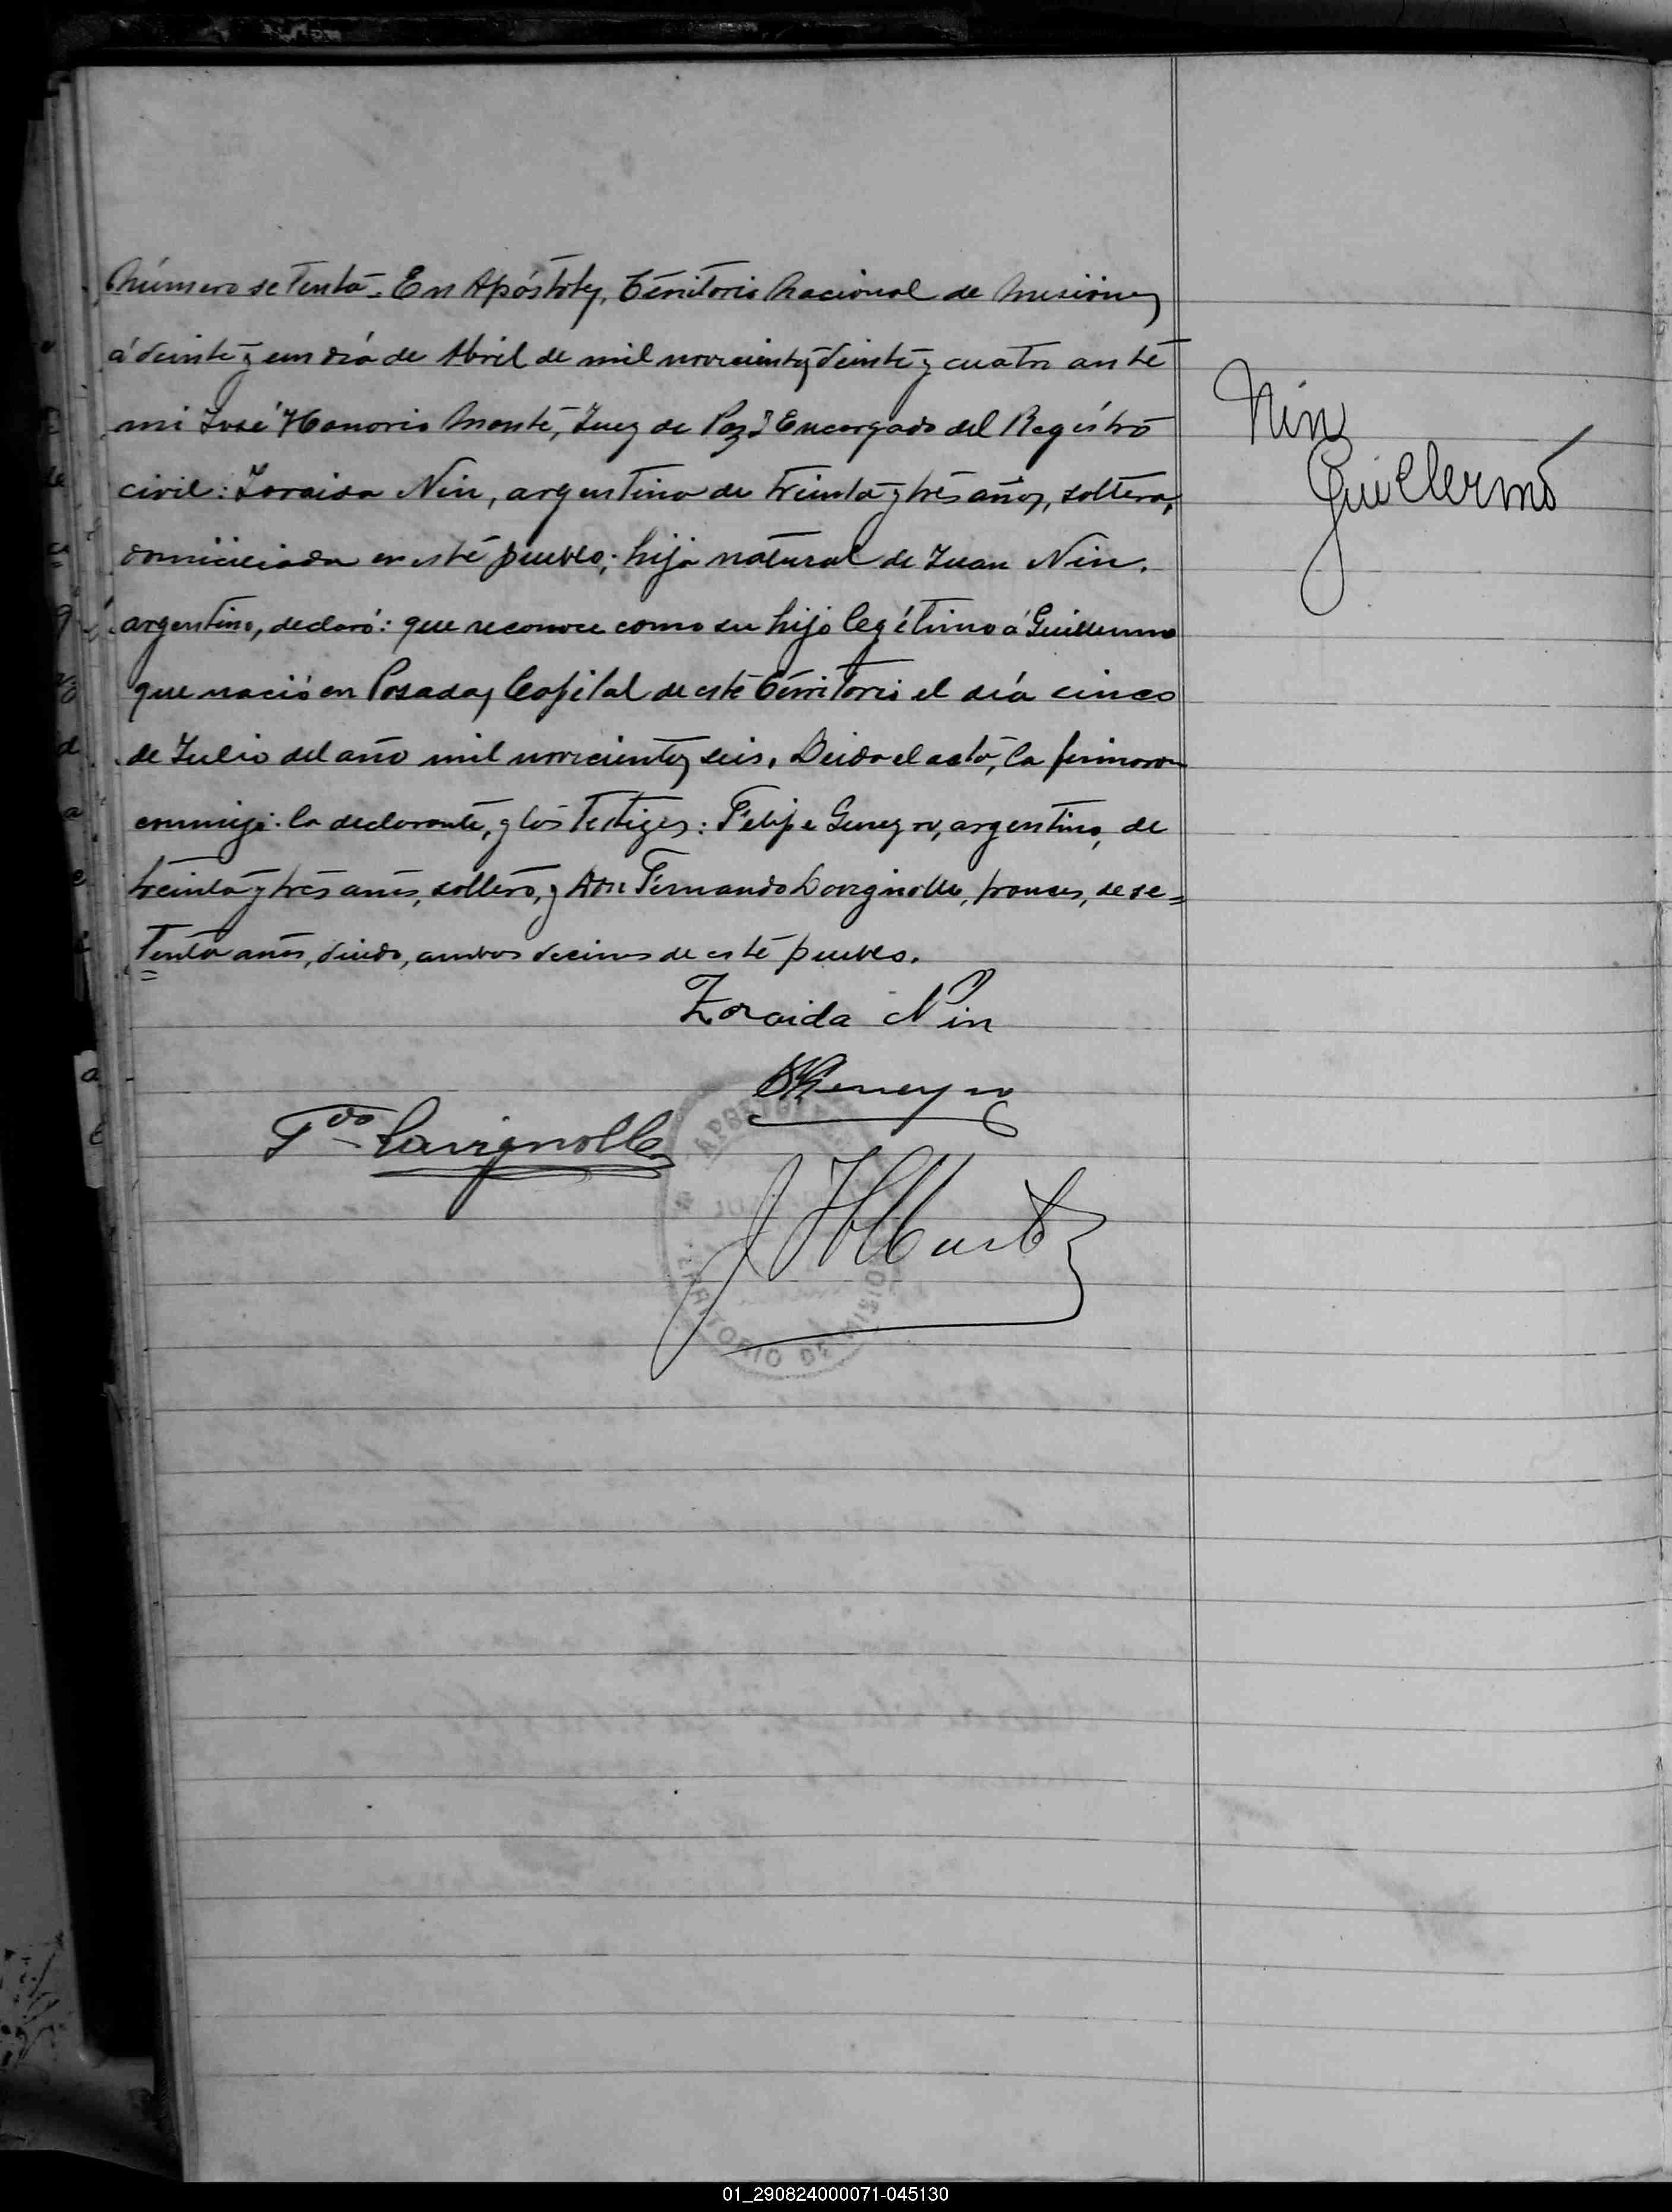 Número setenta = En Apóstoles, Territorio Nacional de Misiones
á veinte y un día de Abril de mil novecientos veinte y cuatro ante
mi José Honorio Monte, Juez de Paz y Encargado del Registro
civil: Zoraida Nin, argentina de treinta y tres años, soltera,
domiciliada en este pueblo; hija natural de Juan Nin.
argentino, declaró: que reconoce como su hijo legítimo á Guillermo
que nació en Posadas, Capital de este Territorio el día cinco
de Julio del año mil novecientos seis. Leida el acta, la firmaron
conmigo la declarante, y los testigos: Felipe Geneyro, argentino, de
treinta y tres años, soltero, y Don Fernando Lavignolle, frances, de se=
=tenta años, viudo, ambos vecinos de este pueblo.
Nin
Guillermo
Zoraida Nin
Geneyro
Fdo Lavignolle
TERRITORIO DE MISIONES
01_290824000071-045130